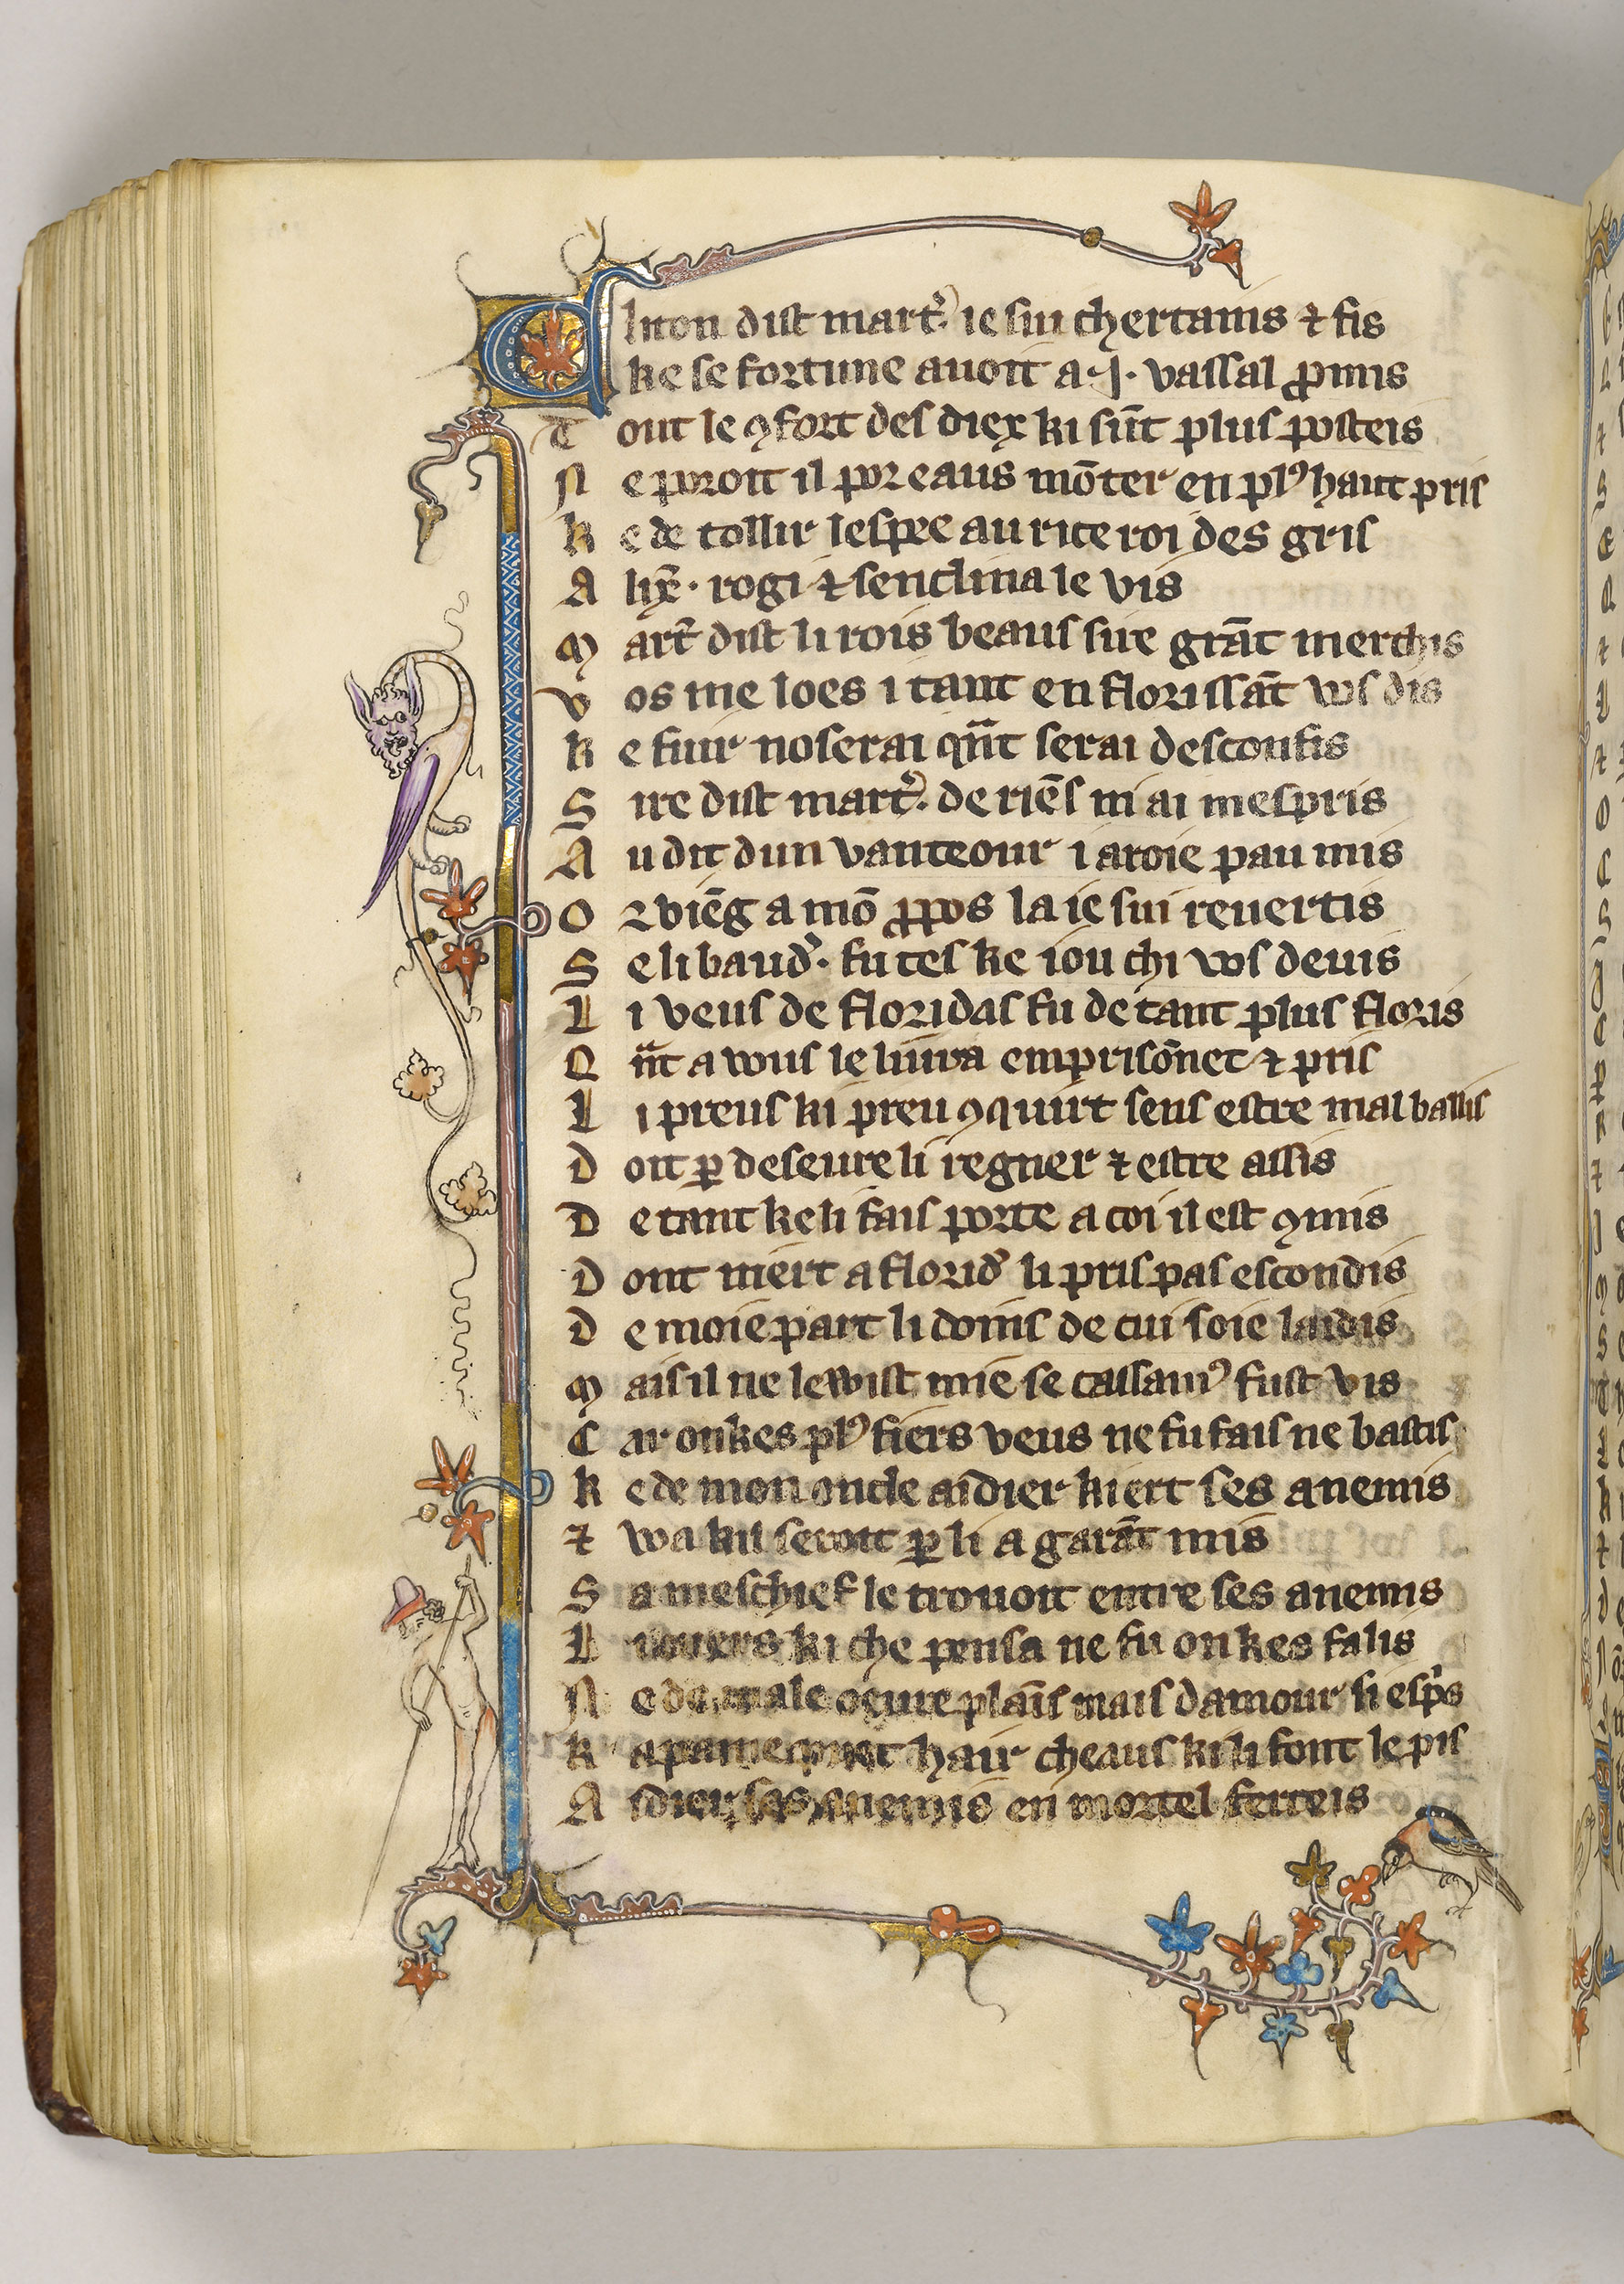 Cliton dist mart̉. ie sui chertains ⁊ fis
ke se fortune auoit a .J. vassal ꝓmis
T out le ꝯfort des diex ki sūt plus posteis
N e poroit il por eaus mōter en plꝰ haut pris
K e de tollir lespee au rice roi des gris
A lix̄. rogi ⁊ senclina le vis
M art̄ dist li rois beaus sire grāt merchis
V os me loes itant en florissāt vos dis
K e fuir noserai qn̄t serai desconfis
S ire dist mart̉. de riēs ni ai mespris
A u dit dun vanteour i aroie pau mis
O r viēg a mō ꝓpos la ie sui reuertis
S e li baud̉. fu tes ke iou chi vos deuis
L i veus de floridas fu de tant plus floris
Q n̄t a vous le liura emprisōnet ⁊ pris
L i preus ki preu ꝯquiirt sens estre mal baillis
D oit ꝑ deseure li regner ⁊ estre assis
D e tant ke li fais porte a coi il est ꝯmis
D ont niert a florid̉ li pris pas escondis
D e moie part li doins de cui soie laidis
M ais il ne lewist mie se cassamꝰ fust vis
C ar onkes plꝰ fiers veus ne fu fais ne bastis
K e de mon oncle aidier kiert ses anemis
⁊ wa kil seroit ꝑ li a garāt mis
S a meschief le trouoit entre ses anemis
L i ki che pensa ne fu onkes falis
N e de male oeure plaīs mais damour si espˢs
K hair cheaus ki li font le pis
A idier ses anemis en mortel ferreis